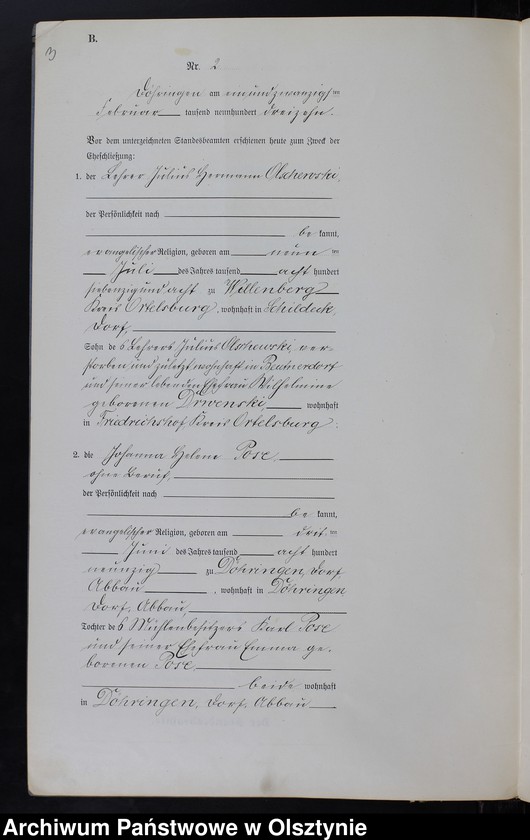 3
B.
Nr. 2
Döhringen am einundzwanzigsten
Februar tausend neunhundert dreizehn.
Vor dem unterzeichneten Standesbeamten erschienen heute zum Zweck der
Eheschließung:
1. der Lehrer Julius Hermann Olschewski,
der Persönlichkeit nach
be kannt,
evangelischer Religion, geboren am neunten
Juli des Jahres tausend acht hundert
siebenzig und acht zu Willenberg
Kreis Ortelsburg, wohnhaft in Schildeck
Dorf,
Sohn des Lehrers Julius Olschewski, ver-
storben und zuletzt wohnhaft in Beutnerdorf
und seiner lebenden Ehefrau Wilhelmine
geborenen Drwenski, wohnhaft
in Friedrichshof Kreis Ortelsburg.
2. die Johanna Helene Pose,
ohne Beruf,
der Persönlichkeit nach
be kannt,
evangelischer Religion, geboren am dritten
Juni des Jahres tausend acht hundert
neunzig zu Döhringen, Dorf,
Abbau, wohnhaft in Döhringen
Dorf, Abbau,
Tochter des Mühlenbesitzers Karl Pose
und seiner Ehefrau Emma ge-
borenen Pose,
beide wohnhaft
in Döhringen, Dorf, Abbau
Archiwum Państwowe w Olsztynie